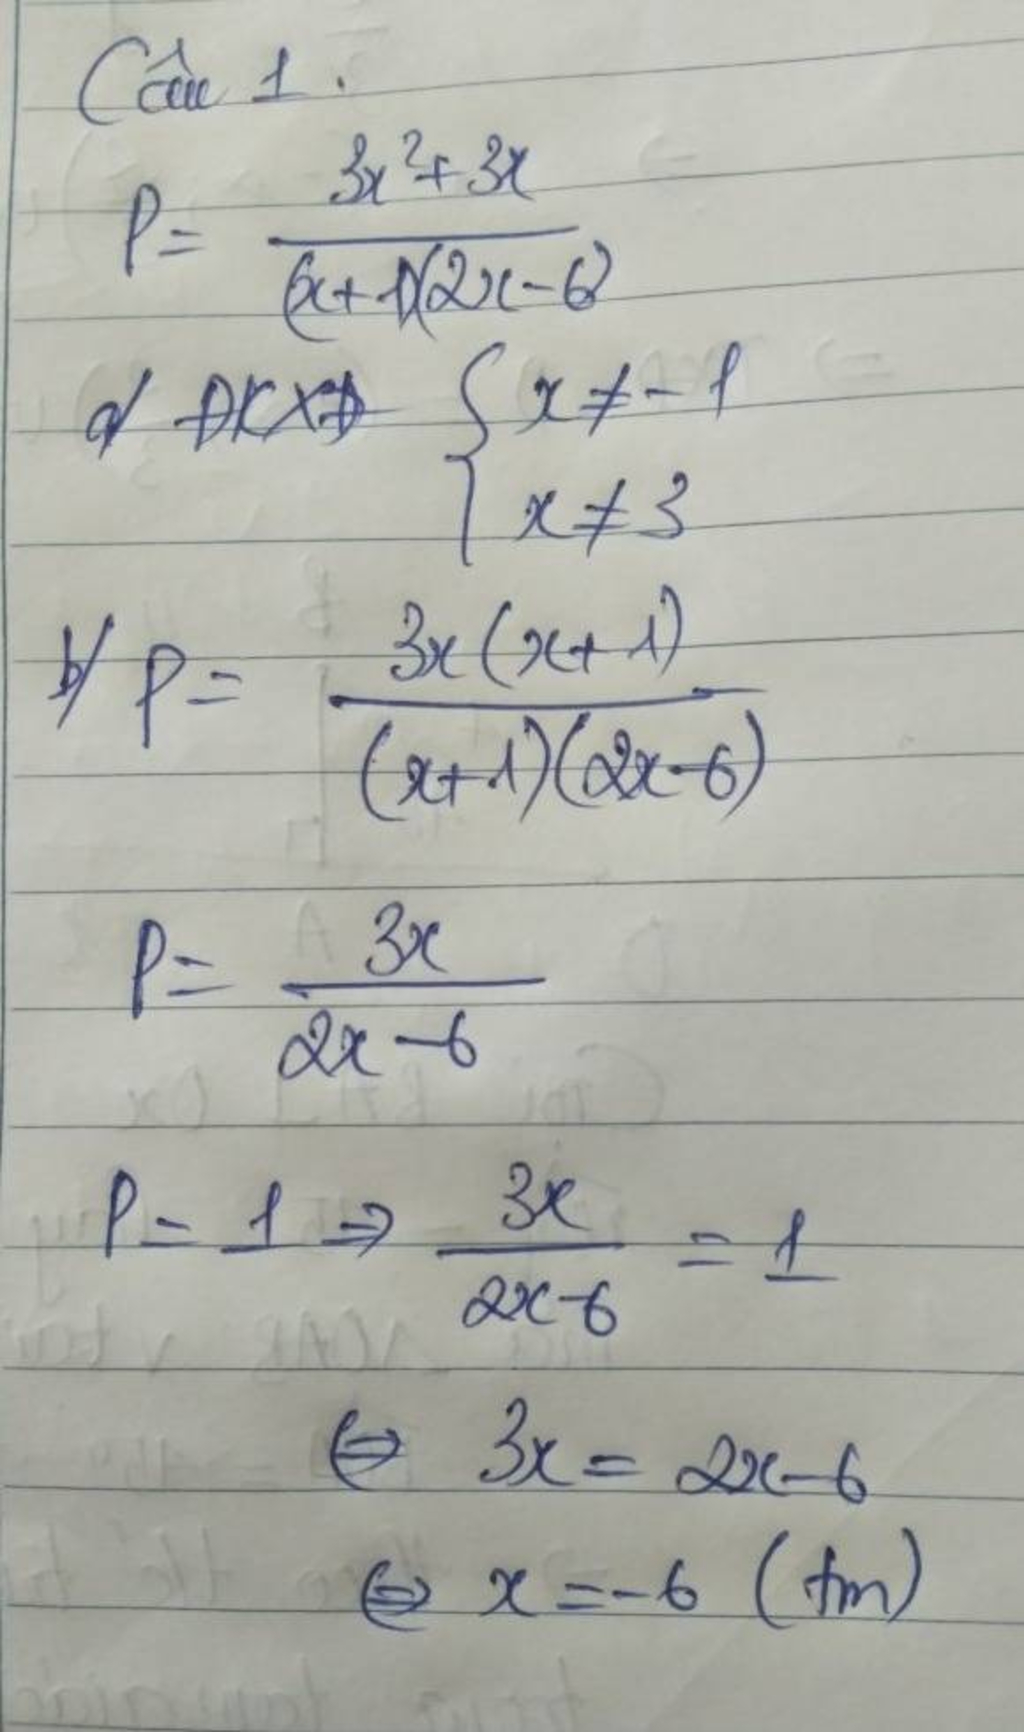 Câu 1.
P = (3x² + 3x) / ((x+1)(2x-6))
a/ ĐKXĐ { x ≠ -1
x ≠ 3
b/ P = 3x(x+1) / ((x+1)(2x-6))
P = 3x / (2x-6)
P = 1 ⇒ 3x / (2x-6) = 1
⇔ 3x = 2x-6
⇔ x = -6 (tm)